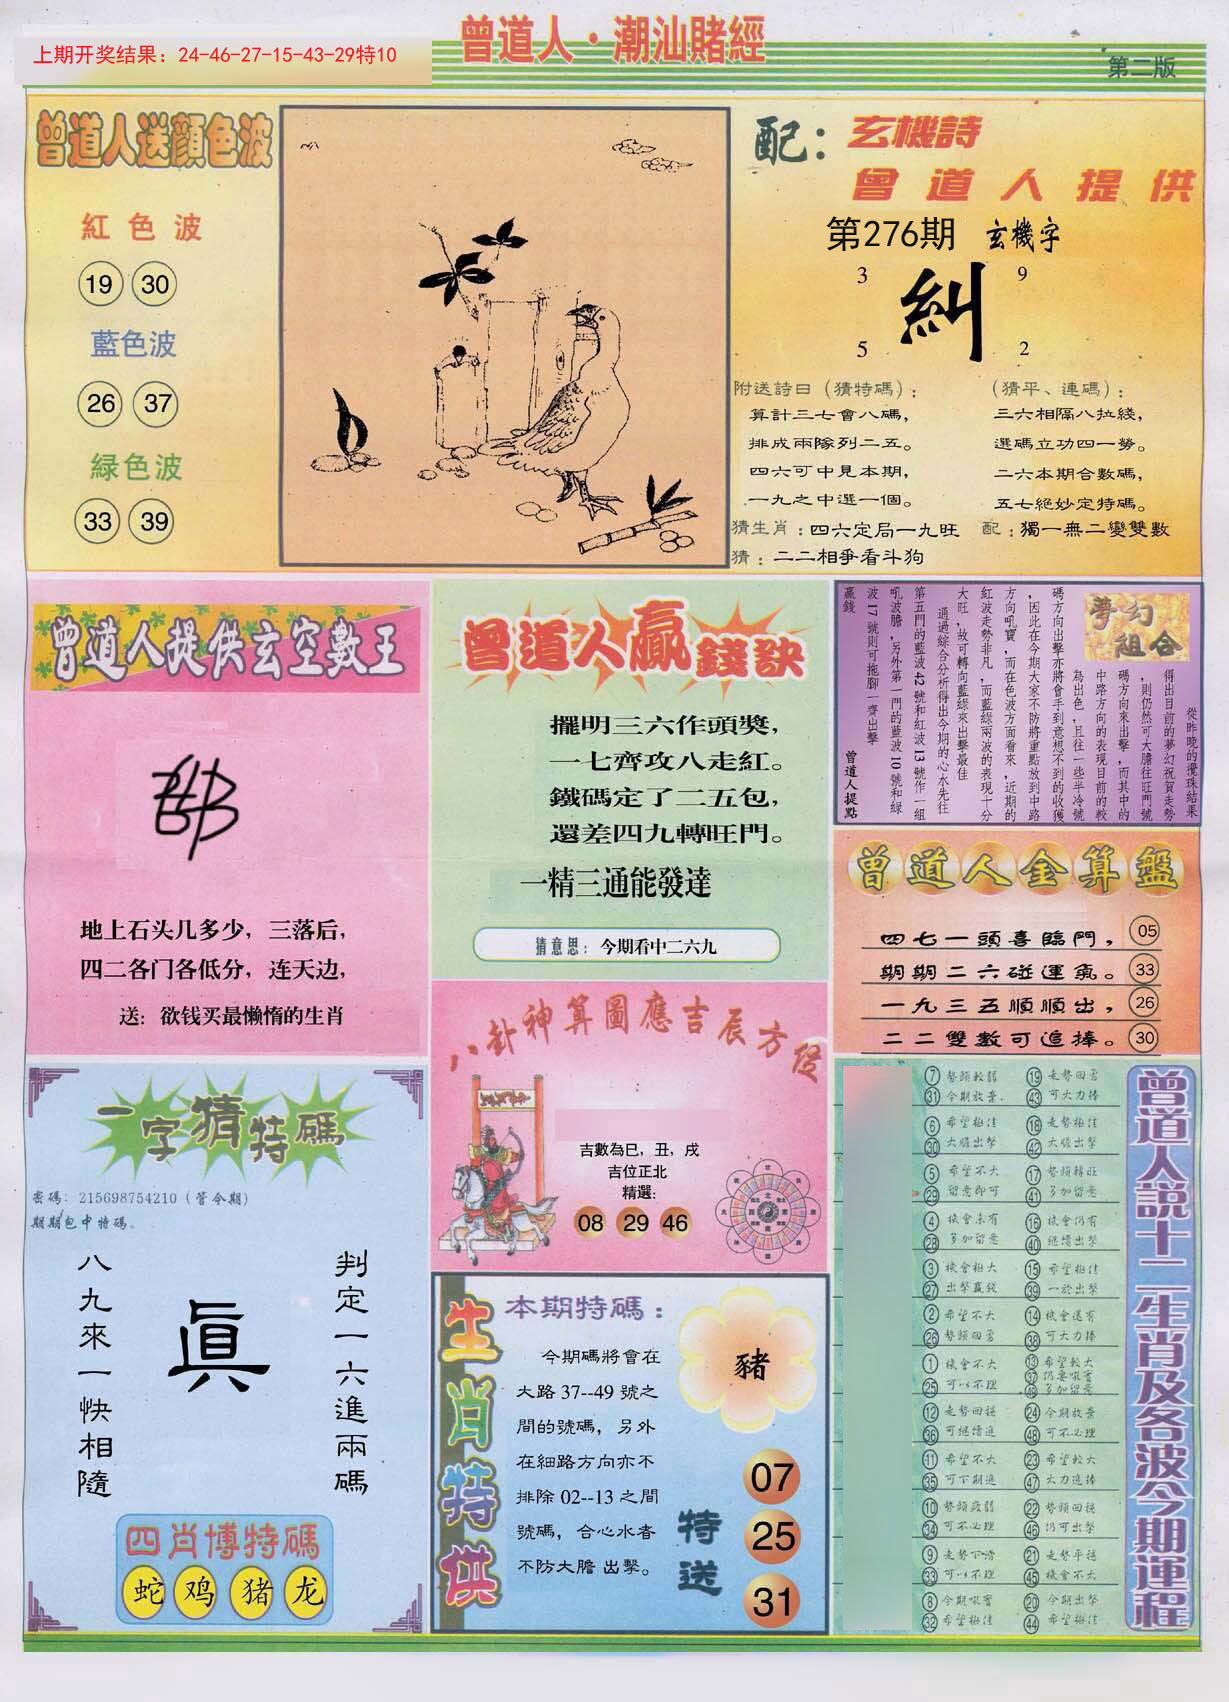 曾道人·潮汕賭經
上期开奖结果：24-46-27-15-43-29特10
第二版
曾道人送顔色波
紅色波
19 30
藍色波
26 37
緑色波
33 39
配：玄機詩
曾道人提供
第276期 玄機字
3 9
糾
5 2
附送詩曰（猜特碼）：
算計三七會八碼，
排成兩隊列二五。
四六可中見本期，
一九之中選一個。
（猜平、連碼）：
三六相隔八拉綫，
選碼立功四一勞。
二六本期合數碼，
五七絶妙定特碼。
猜生肖：四六定局一九旺 配：獨一無二變雙數
猜：二二相爭看斗狗
曾道人提供玄空數王
地上石头几多少，三落后，
四二各门各低分，连天边，
送：欲钱买最懒惰的生肖
曾道人贏錢訣
擺明三六作頭獎，
一七齊攻八走紅。
鐵碼定了二五包，
還差四九轉旺門。
一精三通能發達
猜意思：今期看中二六九
夢幻組合
從昨晚的攪珠結果
得出目前的夢幻祝賀走勢
，則仍然可大膽往旺門號
碼方向來出擊，而其中的
中路方向的表現目前的較
為出色，且往一些半冷號
碼方向出擊亦將會手到意想不到的收獲
，因此在今期大家不防將重點放到中路
方向吼寶，而在色波方面看來，近期的
紅波走勢非凡，而藍緑兩波的表現十分
大旺，故可轉向藍緑來出擊最佳
通過綜合分析得出今期的心水先往
第五門的藍波42號和紅波13號作一組
吼波膽，另外第一門的藍波10號和緑
波17號則可拖腳一齊出擊
贏錢
曾道人提點
曾道人金算盤
四七一頭喜臨門， 05
期期二六碰運氣。 33
一九三五順順出， 26
二二雙數可追捧。 30
八卦神算圖應吉辰方位
吉數為巳，丑，戌
吉位正北
精選：
08 29 46
一字猜特碼
密碼：215698754210（管令期）
期期包中特碼。
判定一六進兩碼
眞
八九來一快相隨
四肖博特碼
蛇 鸡 猪 龙
生肖特供
本期特碼：
今期碼將會在
大路37--49號之
間的號碼，另外
在細路方向亦不
排除02--13之間
號碼，合心水者
不防大膽出擊。
豬
特送
07
25
31
曾道人説十二生肖及各波今期運程
7 勢頭較弱 19 走勢回勇
31 今期放棄. 43 可大力捧
6 希望極佳 18 走勢極佳
30 大膽出擊 42 大膽出擊
5 希望不大 17 勢頭轉旺
29 留意即可 41 多加留意
4 機會未有 16 機會仍有
28 多加留意 40 繼續出擊
3 機會極大 15 希望極佳
27 出擊贏錢 39 一於出擊
2 希望不大 14 機會還有
26 勢頭回勇 38 可大力捧
1 機會不大 13 希望較大
25 可以不理 37 仍要吼實
49 多加留意
12 走勢回穩 24 今期放棄
36 可繼續追 48 可不必理
11 希望不大 23 希望較大
35 可下期追 47 大力追捧
10 勢頭疲弱 22 勢頭回穩
34 可不必理 46 仍可出擊
9 走勢下滑 21 走勢平穩
33 可以不理 45 機會不大
8 今期吼實 20 今期出擊
32 希望極佳 44 希望極佳